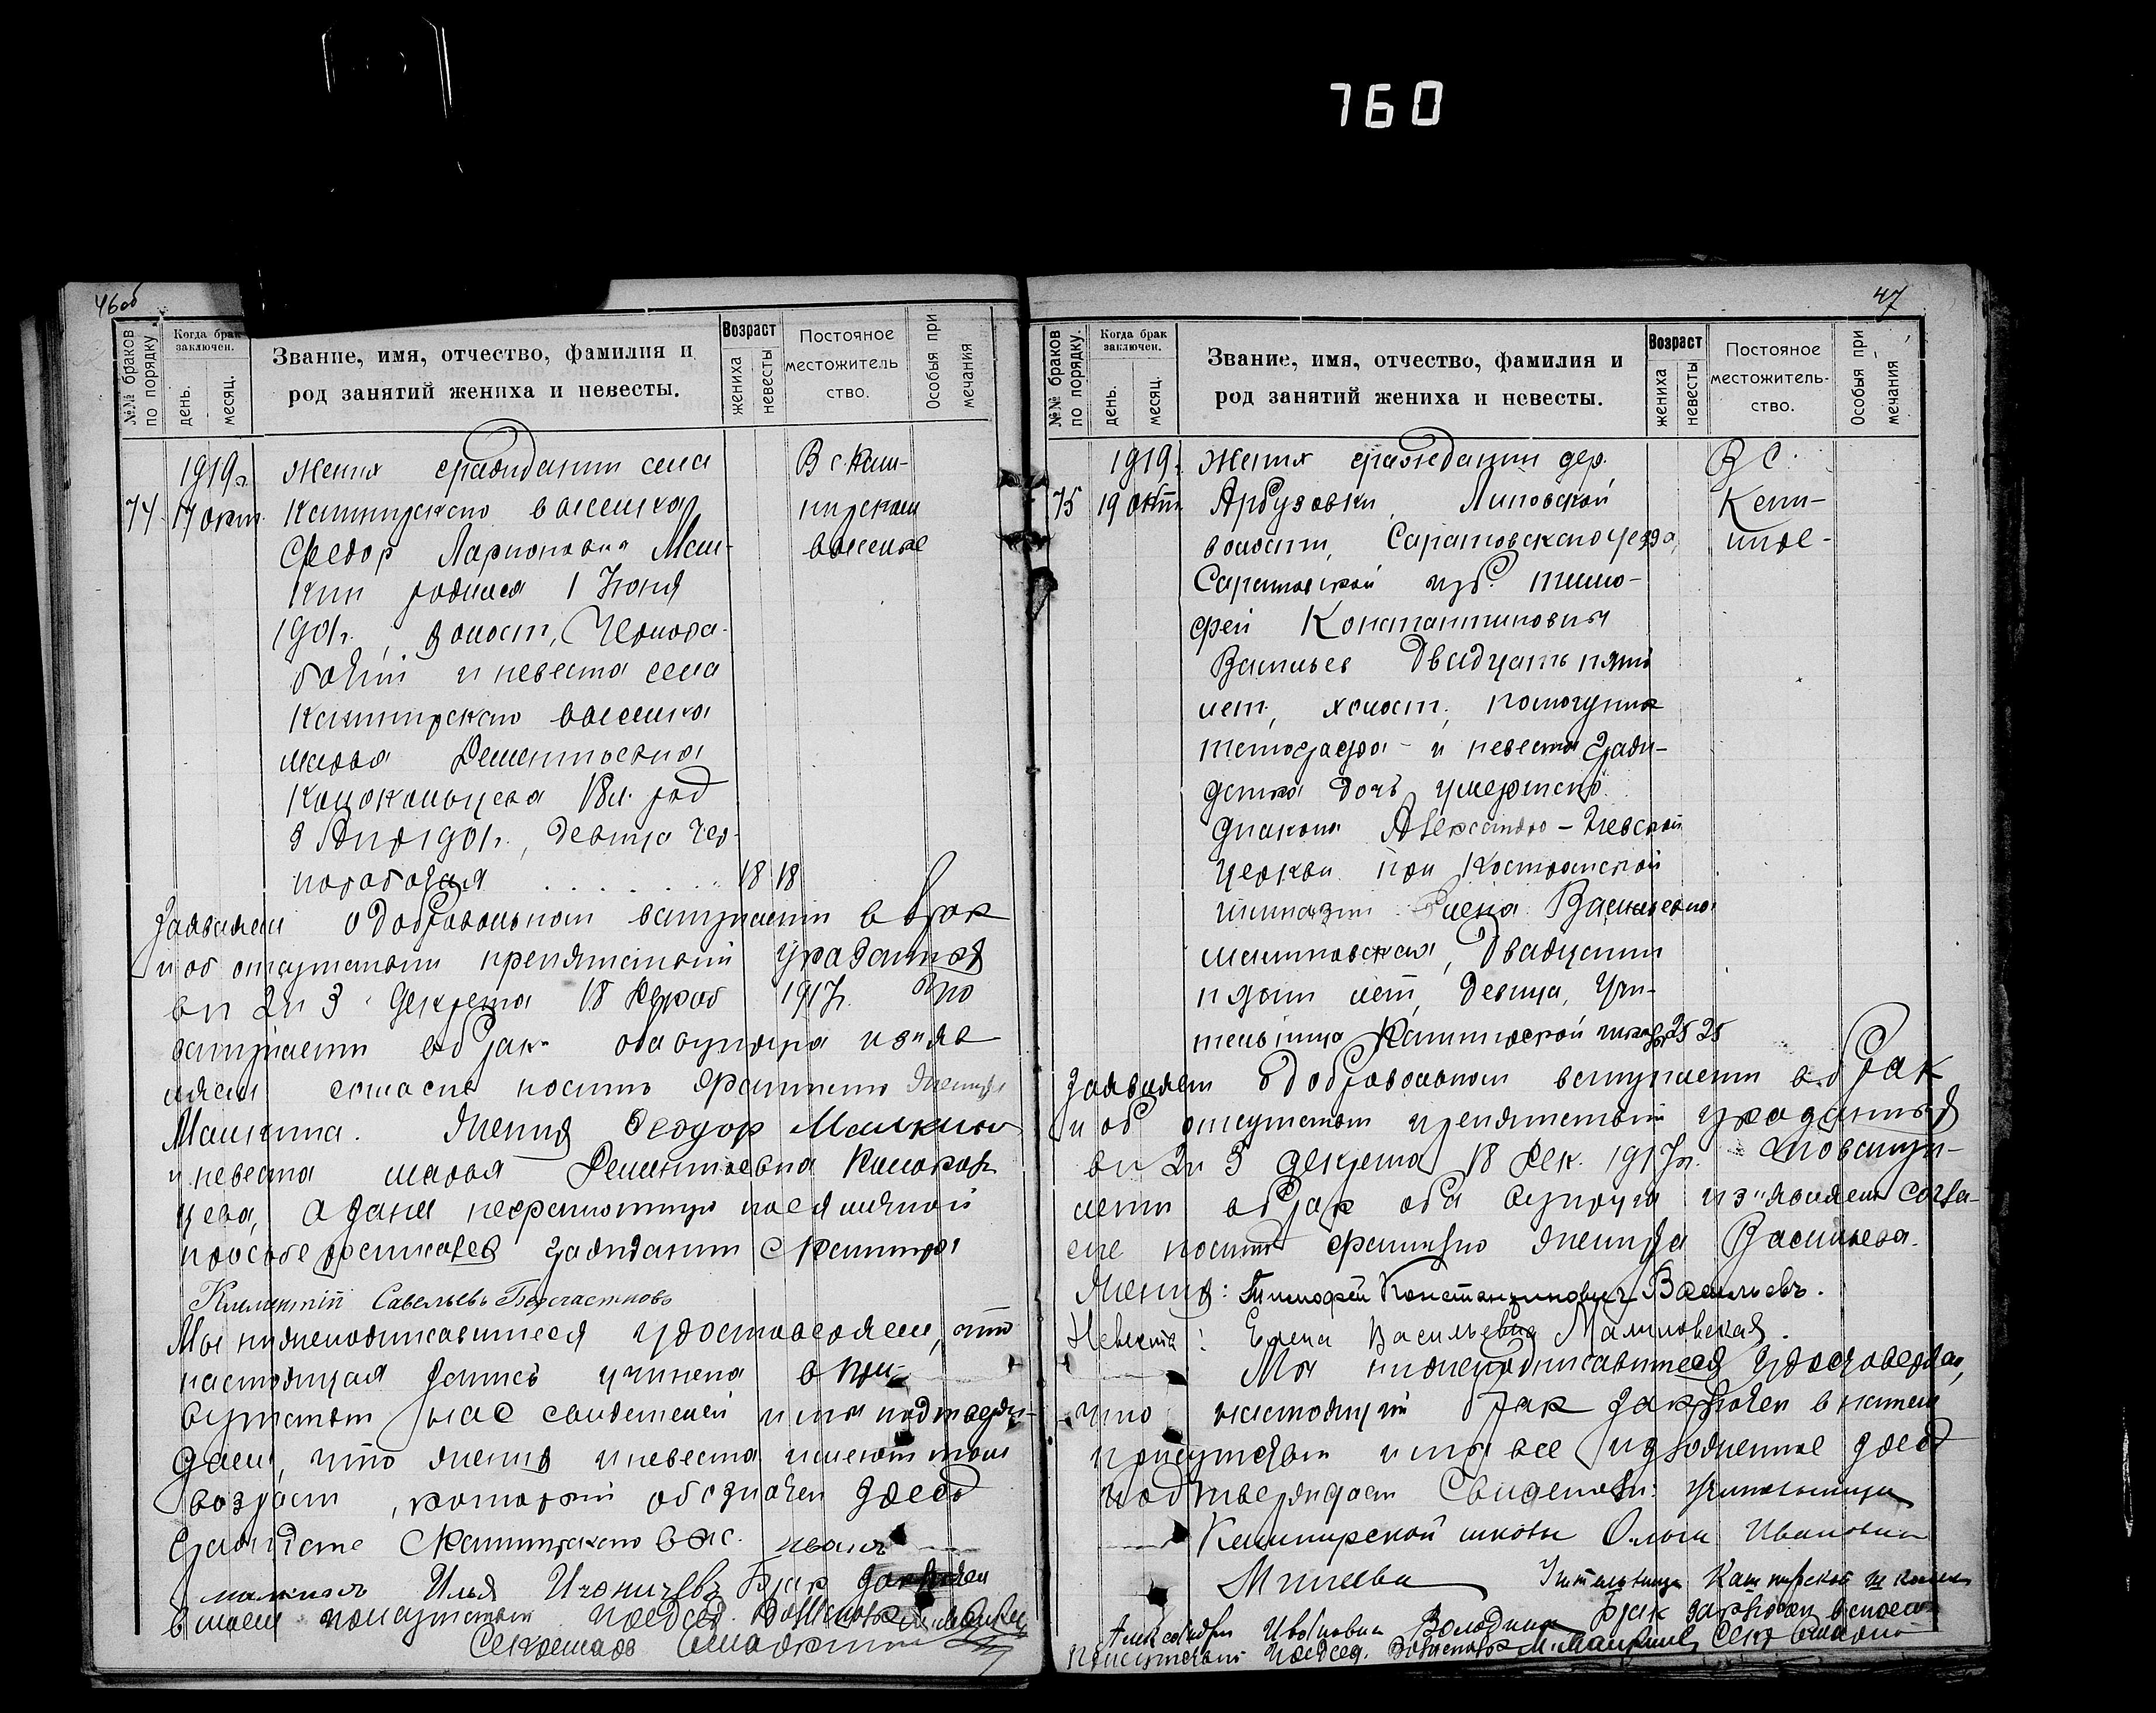 760
46об
№№ браков по порядку
Когда брак заключен.
день.
месяц.
Звание, имя, отчество, фамилия и
род занятий жениха и невесты.
Возраст
жениха
невесты
Постояное
местожитель
ство.
Особыя при
мечания
1919г. жених гражданин села
В с. Каш-
74 17 окт. Кашпирского
пирском
Федор Ларионович Маш-
кин родился 1 Июня
1901г., холост, Чернора-
бочий и невеста села
Кашпирского
Дементьевна
18 л. род
1901г., девица Чер-
норабочая 18 18
Заявляем о добровольном вступлении в брак
и об отсутствии препятствий указанных
в п 2 и 3 декрета 18 Декаб 1917г. Что
вступаем в брак оба супруга изъяв
ляем согласие носить фамилию жениха
Машкина. Жених Федор Машкин
и невеста Дементьевна
цева, а за нея неграмотную по ея личной
просьбе росписался гражданин с Кашпира
Савельевъ
Мы нижеподписавшиеся удостоверяем, что
настоящая запись учинена в при-
сутствии нас свидетелей и мы подтверж-
даем, что жених и невеста имеют тот
возраст, который обозначен здесь
Граждане Кашпирского
Илья Брак заключен
в моем присутствии Председ.
Секретарь
47
№№ браков по порядку.
Когда брак заключен.
день.
месяц.
Звание, имя, отчество, фамилия и
род занятий жениха и невесты.
Возраст
жениха
невесты
Постояное
местожитель-
ство.
Особыя при
мечания
1919. Жених гражданин дер.
В с.
75 19 окт. Арбузовки, Липовской
Каш-
волости, Саратовского уезда,
пире-
Саратовской губ. Тимо-
фей Константинович
Васильев Двадцать пять
лет, холост,
и невеста граж-
данка дочь умершего
диакона Александро-Невской
церкви при Костромской
гимназии Елена Васильевна
Малиновская, Двадцати
пяти лет, девица, Учи-
тельница Кашпирской школы 25 25
Заявляем о добровольном вступлении в брак
и об отсутствии препятствий указанных
в п 2 и 3 декрета 18 Дек. 1917г. что вступ-
аем в брак оба супруга изъявляем согла-
сие носить фамилию жениха Васильева.
Жених: Тимофей Константиновичъ Васильевъ.
Невеста: Елена Васильевна Малиновская.
Мы нижеподписавшиеся удостоверяем,
что настоящий брак заключен в нашем
присутствии и мы все изложенное здесь
подтверждаем Свидетели: Учительница
Кашпирской школы Ольга Ивановна
Учительница Кашпирской школы
Александра Ивановна Володина Брак заключен в моем
присутствии Председ. М. Машкин Секр